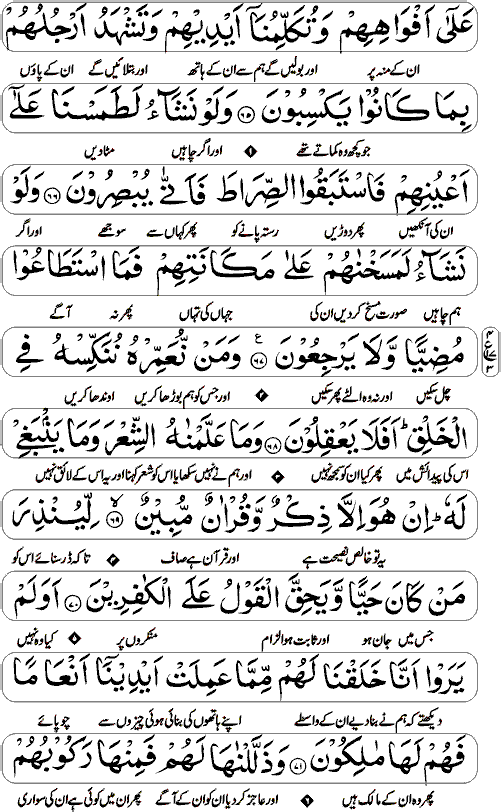 عَلٰٓى اَفْوَاهِهِمْ وَتُكَلِّمُنَاۤ اَيْدِيْهِمْ وَتَشْهَدُ اَرْجُلُهُمْ
ان کے منہ پر اور بولیں گے ہم سے ان کے ہاتھ اور بتلائیں گے ان کے پاؤں
بِمَا كَانُوْا يَكْسِبُوْنَ ﴿۶۵﴾ وَلَوْ نَشَآءُ لَطَمَسْنَا عَلٰٓى
جو کچھ وہ کماتے تھے ۱ اور اگر چاہیں مٹا دیں
اَعْيُنِهِمْ فَاسْتَبَقُوا الصِّرَاطَ فَاَنّٰى يُبْصِرُوْنَ ﴿۶۶﴾ وَلَوْ
ان کی آنکھیں پھر دوڑیں رستہ پانے کو پھر کہاں سے سوجھے اور اگر
نَشَآءُ لَمَسَخْنٰهُمْ عَلٰى مَكَانَتِهِمْ فَمَا اسْتَطَاعُوْا
ہم چاہیں صورت مسخ کر دیں ان کی جہاں کی تہاں پھر نہ آگے
مُضِيًّا وَّلَا يَرْجِعُوْنَ ﴿۶۷﴾ وَمَنْ نُّعَمِّرْهُ نُنَكِّسْهُ فِى
چل سکیں اور نہ وہ الٹے پھر سکیں ۲ اور جس کو ہم بوڑھا کریں اوندھا کریں
الْخَلْقِ ؕ اَفَلَا يَعْقِلُوْنَ ﴿۶۸﴾ وَمَا عَلَّمْنٰهُ الشِّعْرَ وَمَا يَنْۢبَغِىْ
اس کی پیدائش میں پھر کیا ان کو سمجھ نہیں ۳ اور ہم نے نہیں سکھایا اس کو شعر کہنا اور یہ اس کے لائق نہیں
لَهٗ ؕ اِنْ هُوَ اِلَّا ذِكْرٌ وَّقُرْاٰنٌ مُّبِيْنٌ ﴿۶۹﴾ لِّيُنْذِرَ
یہ تو خالص نصیحت ہے اور قرآن ہے صاف ۴ تاکہ ڈر سنائے اس کو
مَنْ كَانَ حَيًّا وَّيَحِقَّ الْقَوْلُ عَلَى الْكٰفِرِيْنَ ﴿۷۰﴾ اَوَلَمْ
جس میں جان ہو اور ثابت ہو الزام منکروں پر ۵ کیا وہ نہیں
يَرَوْا اَنَّا خَلَقْنَا لَهُمْ مِّمَّا عَمِلَتْ اَيْدِيْنَاۤ اَنْعَامًا
دیکھتے کہ ہم نے بنا دیے ان کے واسطے اپنے ہاتھوں کی بنائی ہوئی چیزوں سے چوپائے
فَهُمْ لَهَا مٰلِكُوْنَ ﴿۷۱﴾ وَذَلَّلْنٰهَا لَهُمْ فَمِنْهَا رَكُوْبُهُمْ
پھر وہ ان کے مالک ہیں ۶ اور عاجز کر دیا ان کو ان کے آگے پھر ان میں کوئی ہے ان کی سواری